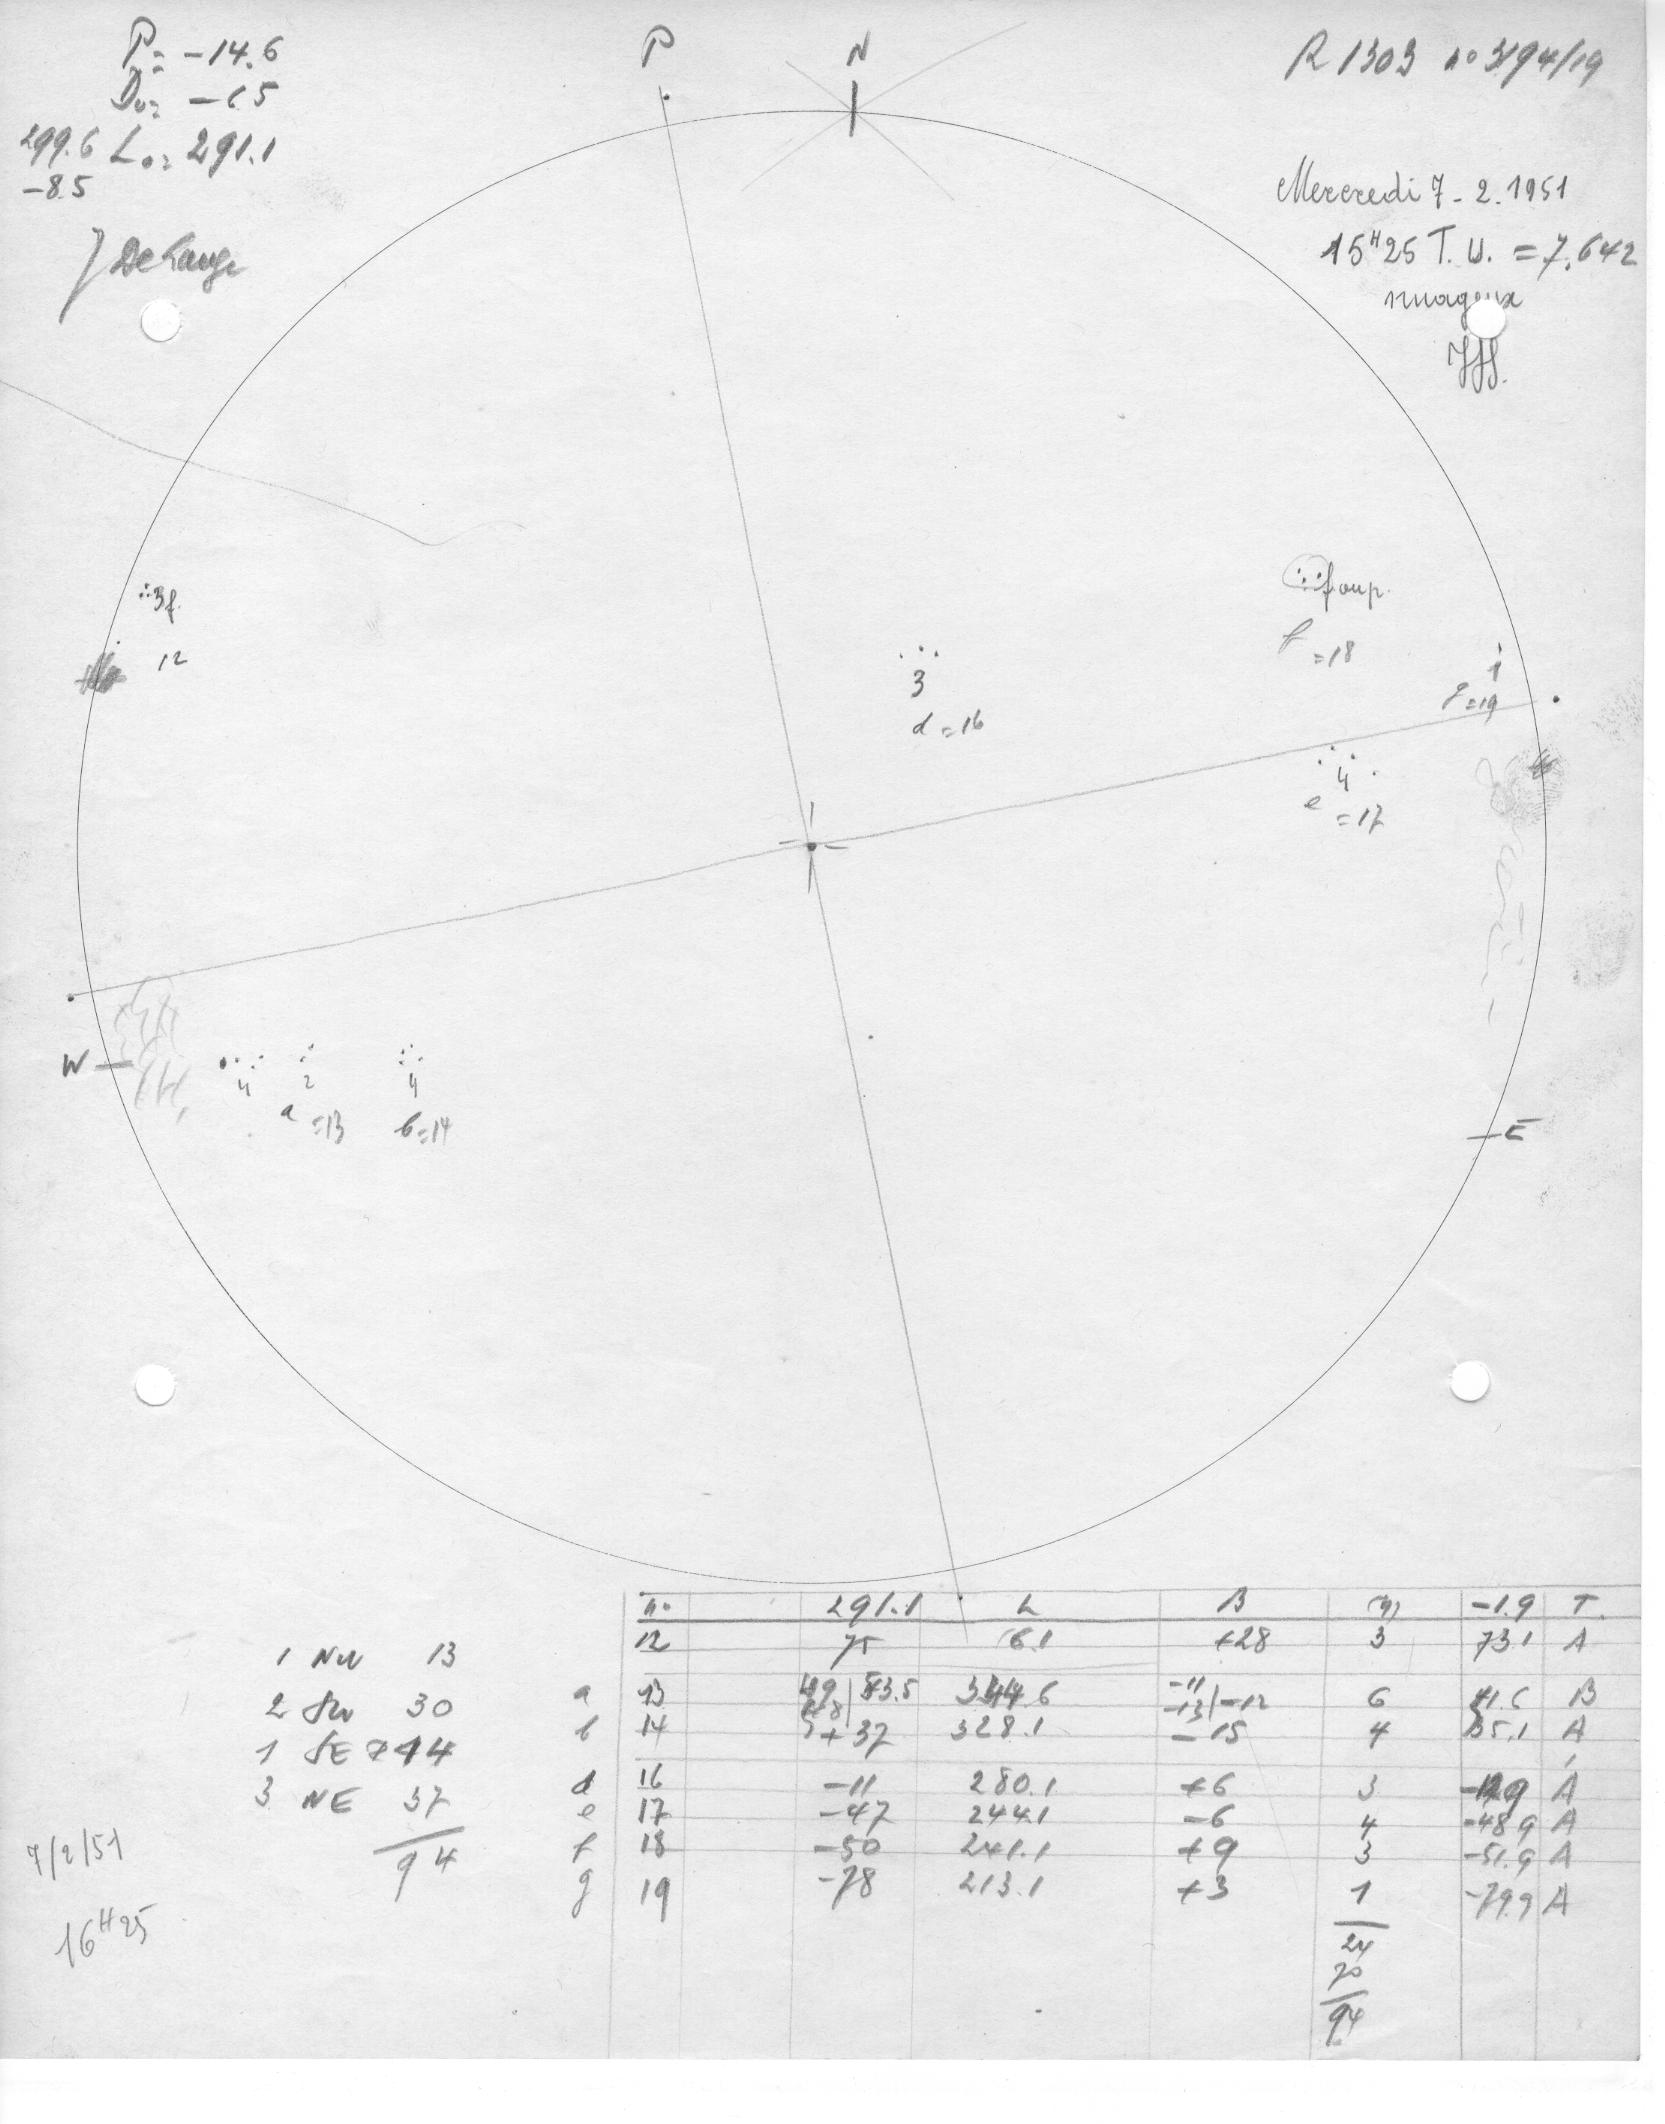 P = -14.6
P
N
R 1303 no 3194/19
299.6 Lo = 291.1
-8.5
Mercredi 7-2.1951
15H25 T.U. = 7.642
nuageux
3f
12
f oup.
f = 18
3
d = 16
1
g = 19
4
e = 17
W
4
2
4
a = 13
b = 14
E
no 291.1 L B (n) -1.9 T.
12 75 6.1 +28 3 73.1 A
a 13 344.6 -11 -13 | -12 6 B
b 14 +37 328.1 -15 4 35.1 A
d 16 -11 280.1 +6 3 A
e 17 -47 244.1 -6 4 -48.9 A
f 18 -50 241.1 +9 3 -51.9 A
g 19 -78 213.1 +3 1 -79.9 A
24
70
94
1 NW 13
2 SW 30
1 SE 14
3 NE 37
94
7/2/51
16H25